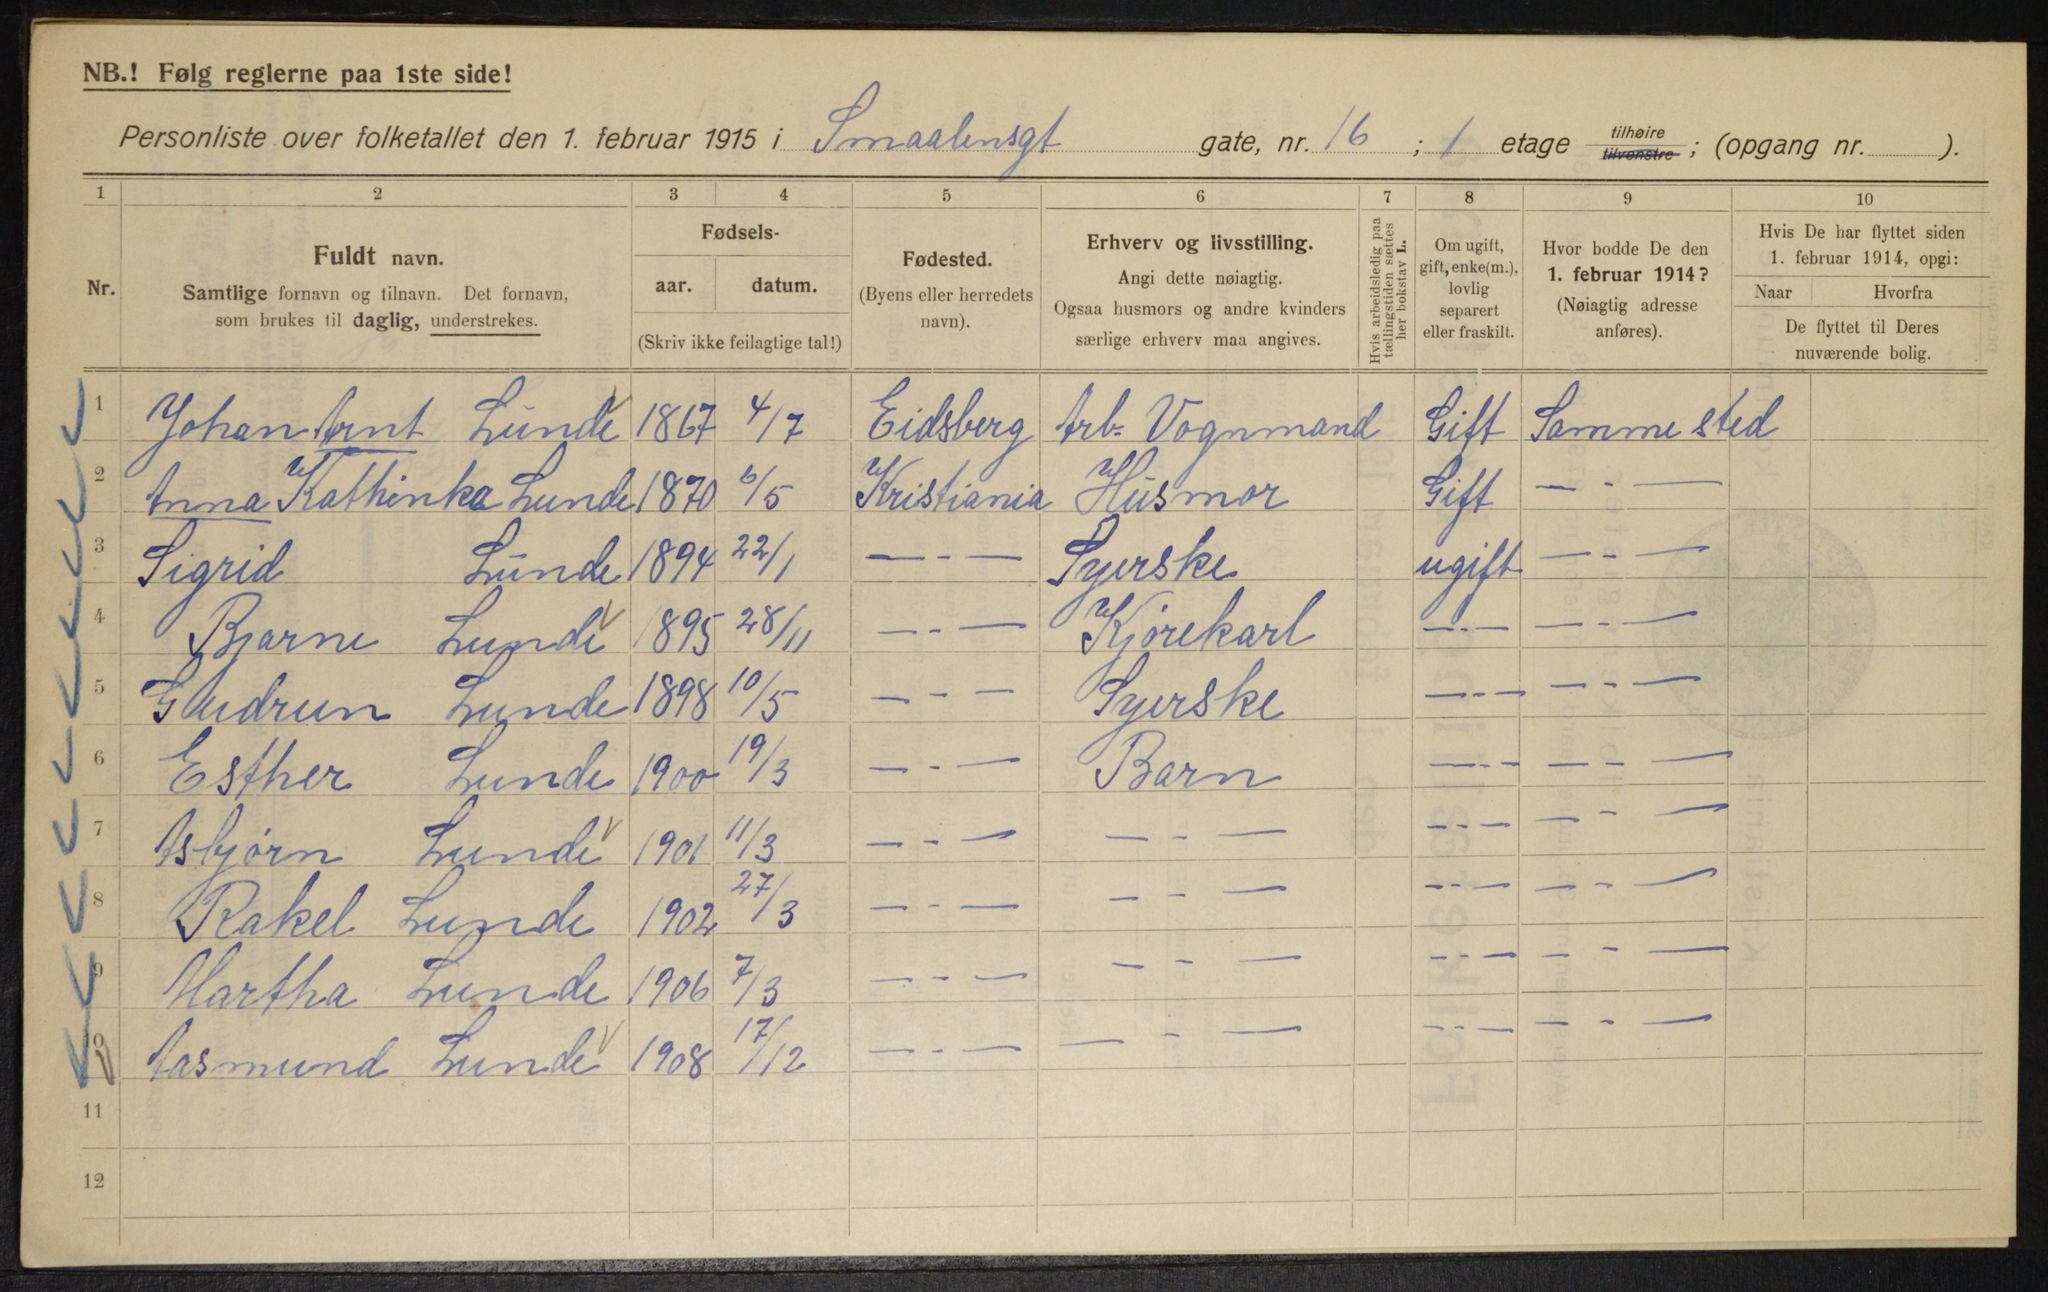 NB.! Følg reglerne paa 1ste side!
Personliste over folketallet den 1. februar 1915 i Smaalensgt gate, nr. 16 ; 1 etage tilhøire tilvenstre ; (opgang nr. ).
1 2 3 4 5 6 7 8 9 10
Nr.
Fuldt navn.
Samtlige fornavn og tilnavn. Det fornavn,
som brukes til daglig, understrekes.
Fødsels-
aar. datum.
(Skriv ikke feilagtige tal!)
Fødested.
(Byens eller herredets
navn).
Erhverv og livsstilling.
Angi dette nøiagtig.
Ogsaa husmors og andre kvinders
særlige erhverv maa angives.
Hvis arbeidsledig paa
tællingstiden sættes
her bokstav L.
Om ugift,
gift, enke(m.),
lovlig
separert
eller fraskilt.
Hvor bodde De den
1. februar 1914?
(Nøiagtig adresse
anføres).
Hvis De har flyttet siden
1. februar 1914, opgi:
Naar Hvorfra
De flyttet til Deres
nuværende bolig.
1 Johan Arnt Lunde 1867 4/7 Eidsberg Arb. Vognmand Gift Samme sted
2 Anna Kathinka Lunde 1870 6/5 Kristiania Husmor Gift — - —
3 Sigrid Lunde 1894 22/1 — - — Syerske ugift — - —
4 Bjarne Lunde 1895 28/11 — - — Kjørekarl — - — — - —
5 Gudrun Lunde 1898 10/5 — - — Syerske — - — — - —
6 Esther Lunde 1900 19/3 — - — Barn — - — — - —
7 Asbjørn Lunde 1901 11/3 — - — — - — — - — — - —
8 Rakel Lunde 1902 27/3 — - — — - — — - — — - —
9 Martha Lunde 1906 7/3 — - — — - — — - — — - —
10 Aasmund Lunde 1908 17/12 — - — — - — — - — — - —
11
12